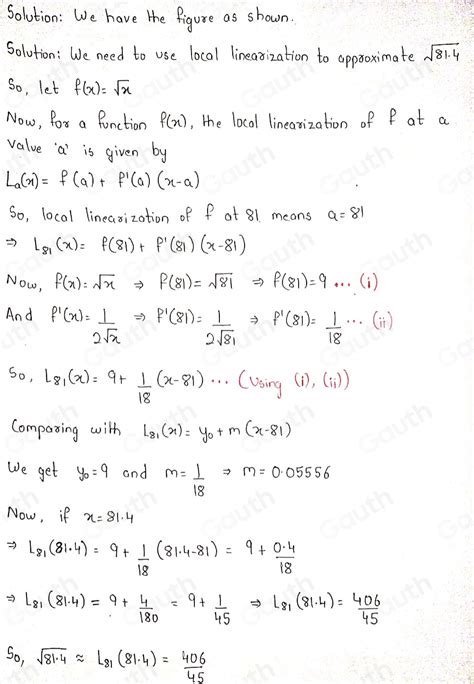 Solution: We have the figure as shown.
Solution: We need to use local linearization to approximate √81.4
So, let f(x) = √x
Now, for a function f(x), the local linearization of f at a
value 'a' is given by
La(x) = f(a) + f'(a) (x-a)
So, local linearization of f at 81 means a=81
⇒ L81(x) = f(81) + f'(81) (x-81)
Now, f(x) = √x ⇒ f(81) = √81 ⇒ f(81) = 9 ... (i)
And f'(x) = 1/2√x ⇒ f'(81) = 1/2√81 ⇒ f'(81) = 1/18 ... (ii)
So, L81(x) = 9 + 1/18 (x-81) ... (Using (i), (ii))
Comparing with L81(x) = y0 + m(x-81)
We get y0 = 9 and m = 1/18 ⇒ m = 0.05556
Now, if x = 81.4
⇒ L81(81.4) = 9 + 1/18 (81.4-81) = 9 + 0.4/18
⇒ L81(81.4) = 9 + 4/180 = 9 + 1/45 ⇒ L81(81.4) = 406/45
So, √81.4 ≈ L81(81.4) = 406/45